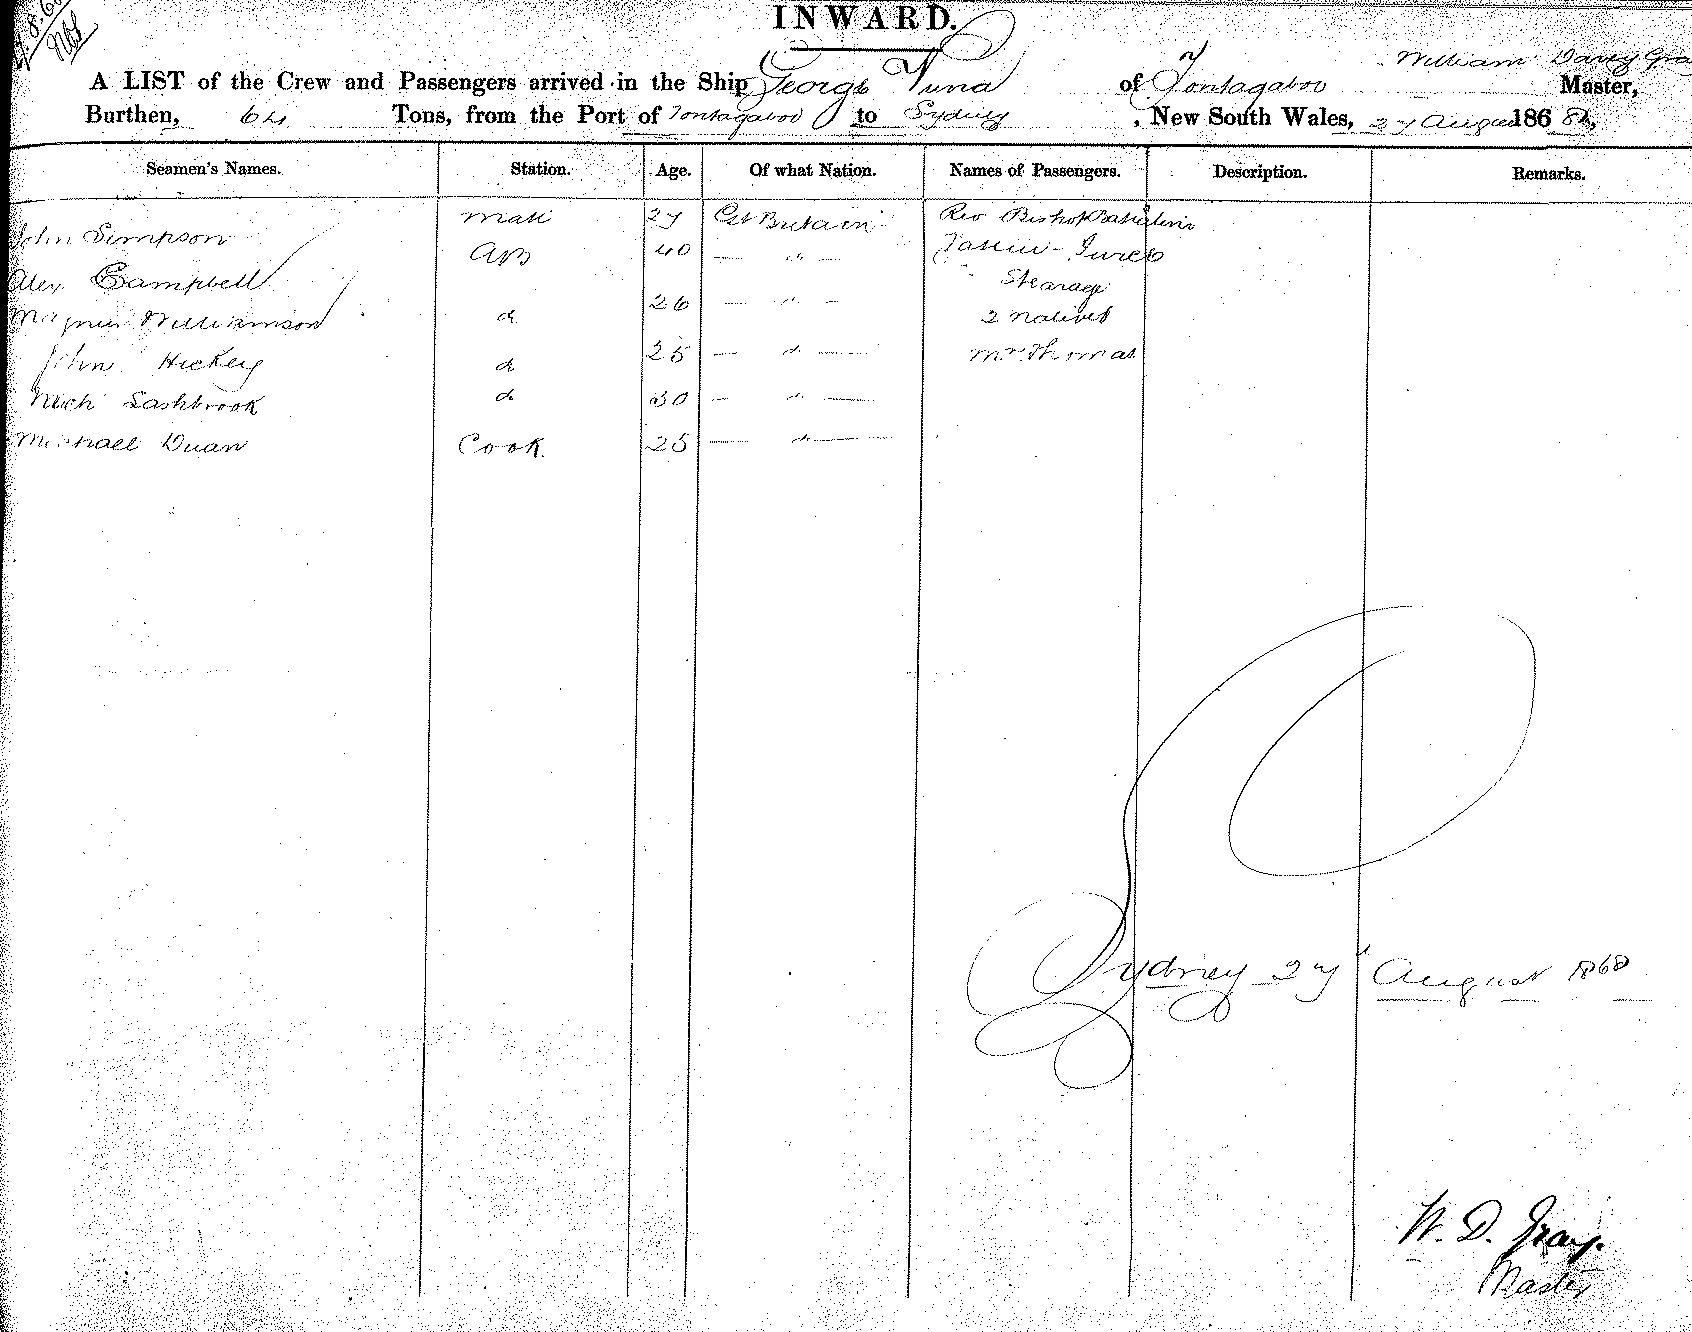 INWARD.
A LIST of the Crew and Passengers arrived in the Ship George Tuna of Tontagaboo William Davey Gra Master,
Burthen, 64 Tons, from the Port of Tontagaboo to Sydney, New South Wales, 27 August 1868,
Seamen's Names. Station. Age. Of what Nation. Names of Passengers. Description. Remarks.
John Simpson Mate 27 Gt Britain Rev Bishop
Alex Campbell AB 40 — " —
Stearage
Magnus Williamson do 26 — " — 2 natives
John Hickey do 25 — do — Mr Thomas
Mich Lashbrook do 30 — " —
Michael Duan Cook 25 — " —
Sydney 27 August 1868
W. D. Gray.
Master